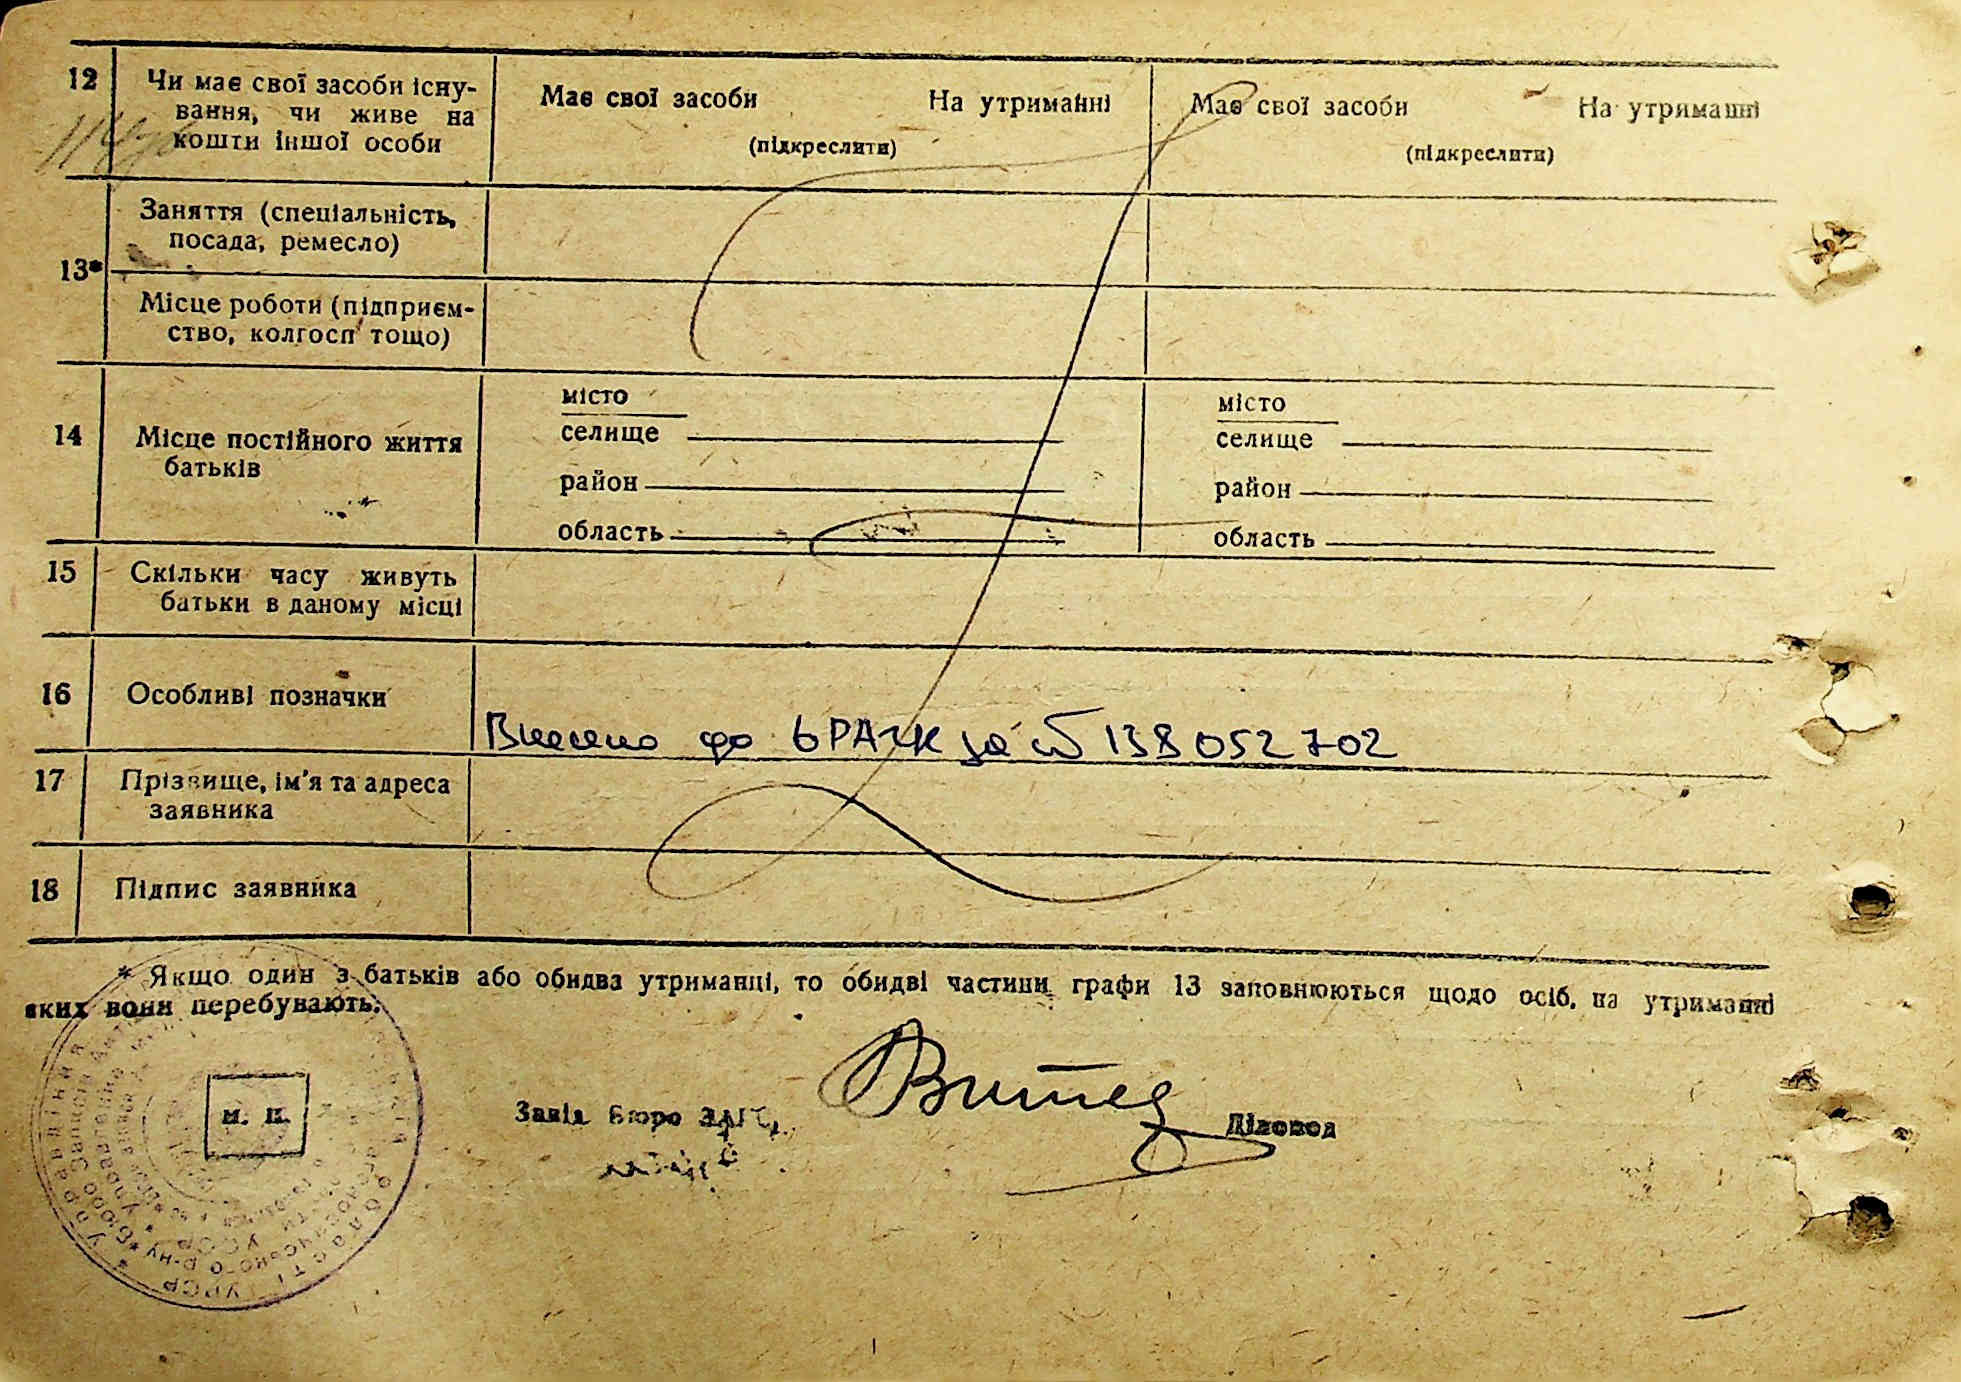 12 Чи має свої засоби існу- Має свої засоби На утриманні Має свої засоби На утриманні
вання, чи живе на (підкреслити) (підкреслити)
кошти іншої особи
Заняття (спеціальність,
посада, ремесло)
13*
Місце роботи (підприєм-
ство, колгосп тощо)
місто місто
14 Місце постійного життя селище селище
батьків
район район
область область
15 Скільки часу живуть
батьки в даному місці
16 Особливі позначки
Внесено до ЕРАЦСК за № 138052702
17 Прізвище, ім'я та адреса
заявника
18 Підпис заявника
* Якщо один з батьків або обидва утриманці, то обидві частини графи 13 заповнюються щодо осіб, на утриманні
яких вони перебувають.
м. п.
Завід бюро ЗАГС Діловод